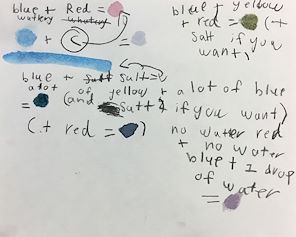 blue + Red =
watery watery
+ C =
blue + salt =
alot of yellow + alot of blue
= (and salt if you want)
(.+ red = )
blue + yellow
+ red = (+
salt if you
want)
no water red
+ no water
blue + 1 drop
of water
=